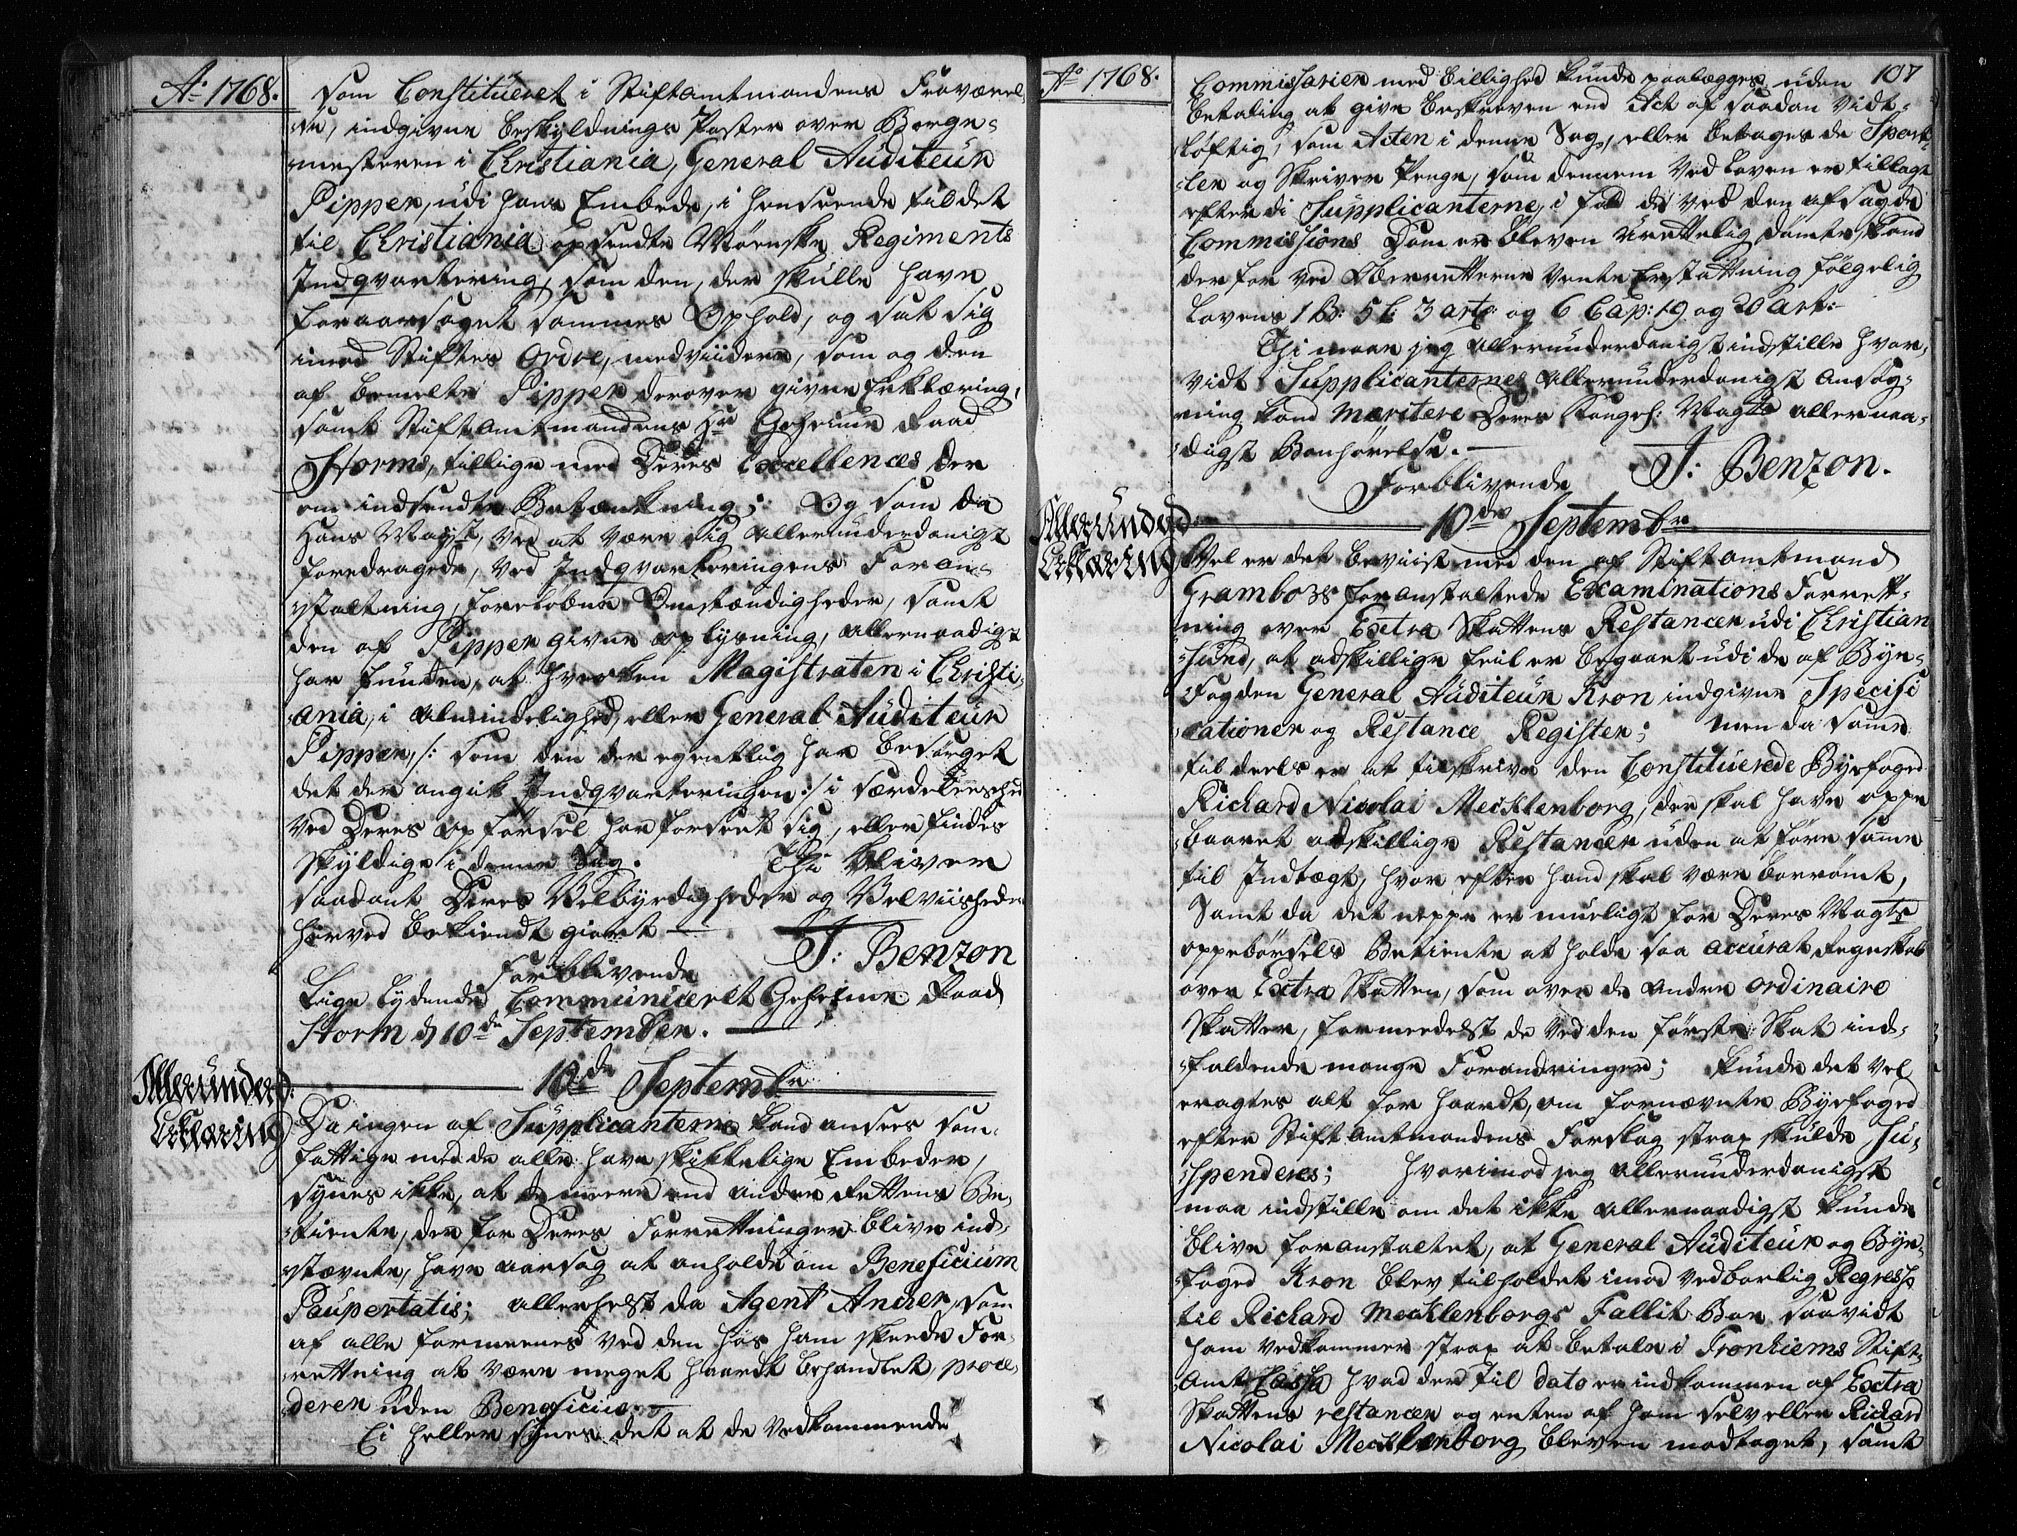 Ao 1768.
som Constitueret i Stiftamtmandens Fraværel-
se, indgivne beskyldnings Poster over Borge-
mesteren i Christiania, General Auditeur
Pipper, udi hans Embede, i henseende til det
til Christiania opsendte Mørenske Regiments
Indqvartering, som den, der skulle have
foraarsaget sammes Ophold, og sat sig
imod Stiftes Ordre, med viidere, som og den
af bemelte Pipper derover givne Erklæring,
samt Stiftamtmandens Hr Geheime Raad
Storms, tillige med Deres Excellences der
om indsendte Betænkning; Og som da
Hans Mayst, ved at være sig allerunderdanigst
foredraget, ved Indqvarteringens Foran-
staltning, foreløbne Omstændigheder, samt
den af Pipper givne oplysning, allernaadigst
har funden, at hverken Magistraten i Christi-
ania, i almindelighed, eller General Auditeur
Pipper, /: som den der egentlig har besørget
det der angik Indqvarteringen :/ i særdeleshed
ved Deres opførsel har forseet sig, eller findes
skyldige i denne Sag. Thi bliver
saadant Deres Velbyrdigheder og Velviisheder
herved bekiendt giort
Forblivende T: Benzon
Lige lydende Communiceret Geheime Raad
Storm d 10de September.
Allerunderd: 10de Septembr
Erklæring Da ingen af Supplicanterne kand ansees som
fattige med de alle have skikkelige Embeder,
synes ikke, at de meere end andre Rettens Be-
tiente, der for Deres Forretninger blive ind-
stævnte, have aarsag at anholde om Beneficium
Paupertatis; allerhelst da Agent Ancher, som
af alle formeenes ved den hos ham skeede For-
rettning at være meget haardt behandlet, proce-
derer uden Beneficio.
Ei heller synes det at de vedkommende
Ao 1768. 107
Commissarier med billighed kunde paalægges uden
betaling at give beskreven end Act af saadan vidt-
løftig, som Acten i denne Sag, eller betages de Sport-
ler og Skriver Penge, som dennem ved Loven er tillagt
efterdi Supplicanterne, i fald de ved den afsagde
Commissions Dom er bleven urettelig dømte, kand
derfor ved Overretterne vente Erstattning følgelig
Lovens 1 B: 5 C: 3 art: og 6 Cap: 19 og 20 Art:
Thi maae jeg allerunderdanigst indstille hvor-
vidt Supplicanternes allerunderdanigst Ansøg-
ning kand meritere Deres Kongel: Mayts allernaa-
digst Bønhørelse.
Forblivende T: Benzon.
Allerunderd: 10de Septembr
Erklæring Vel er det beviist med den af Stiftamtmand
Grambows foranstaltede Examinations Forrett-
ning over Extra Skattens Restancer udi Christian
sund, at adskillige feil er begaaet udi de af Bye-
Fogden General Auditeur Kron indgivne Specifi
cationer og Restance Register; men da samme
til deels er at tilskrive den Constituerede Byefoged
Richard Nicolai Mecklenborg, der skal have oppe
baaret adskillige Restancer uden at føre samme
til Indtægt, hvor efter hand skal være borrømt,
samt da det neppe er mueligt for Deres Mayts
oppebørsels Betiente at holde saa accurat regnskab
over Extra Skatten, som over de andre ordinaire
Skatter, formeedelst de ved den første Skat ind-
faldende mange Forandringer; kunde det vel
eragtes alt for haardt, om fornævnte Byefoged
efter Stiftamtmandens Forslag strax skulde su-
spenderes; hvorimod jeg allerunderdanigst
maa indstille om det ikke allernaadigst kunde
blive foranstaltet, at General Auditeur og Bye-
foged Kron blev tilholdet imod vedbørlig Regress
til Richard Mecklenborgs Fallit Boe saavidt
ham vedkommer strax at betale i Tronhiems Stift-
amt Cassa hvad der til dato er indkommen af Extra
Skattens restancer og enten af ham selv eller Richard
Nicolai Mecklenborg bleven modtaget, samt